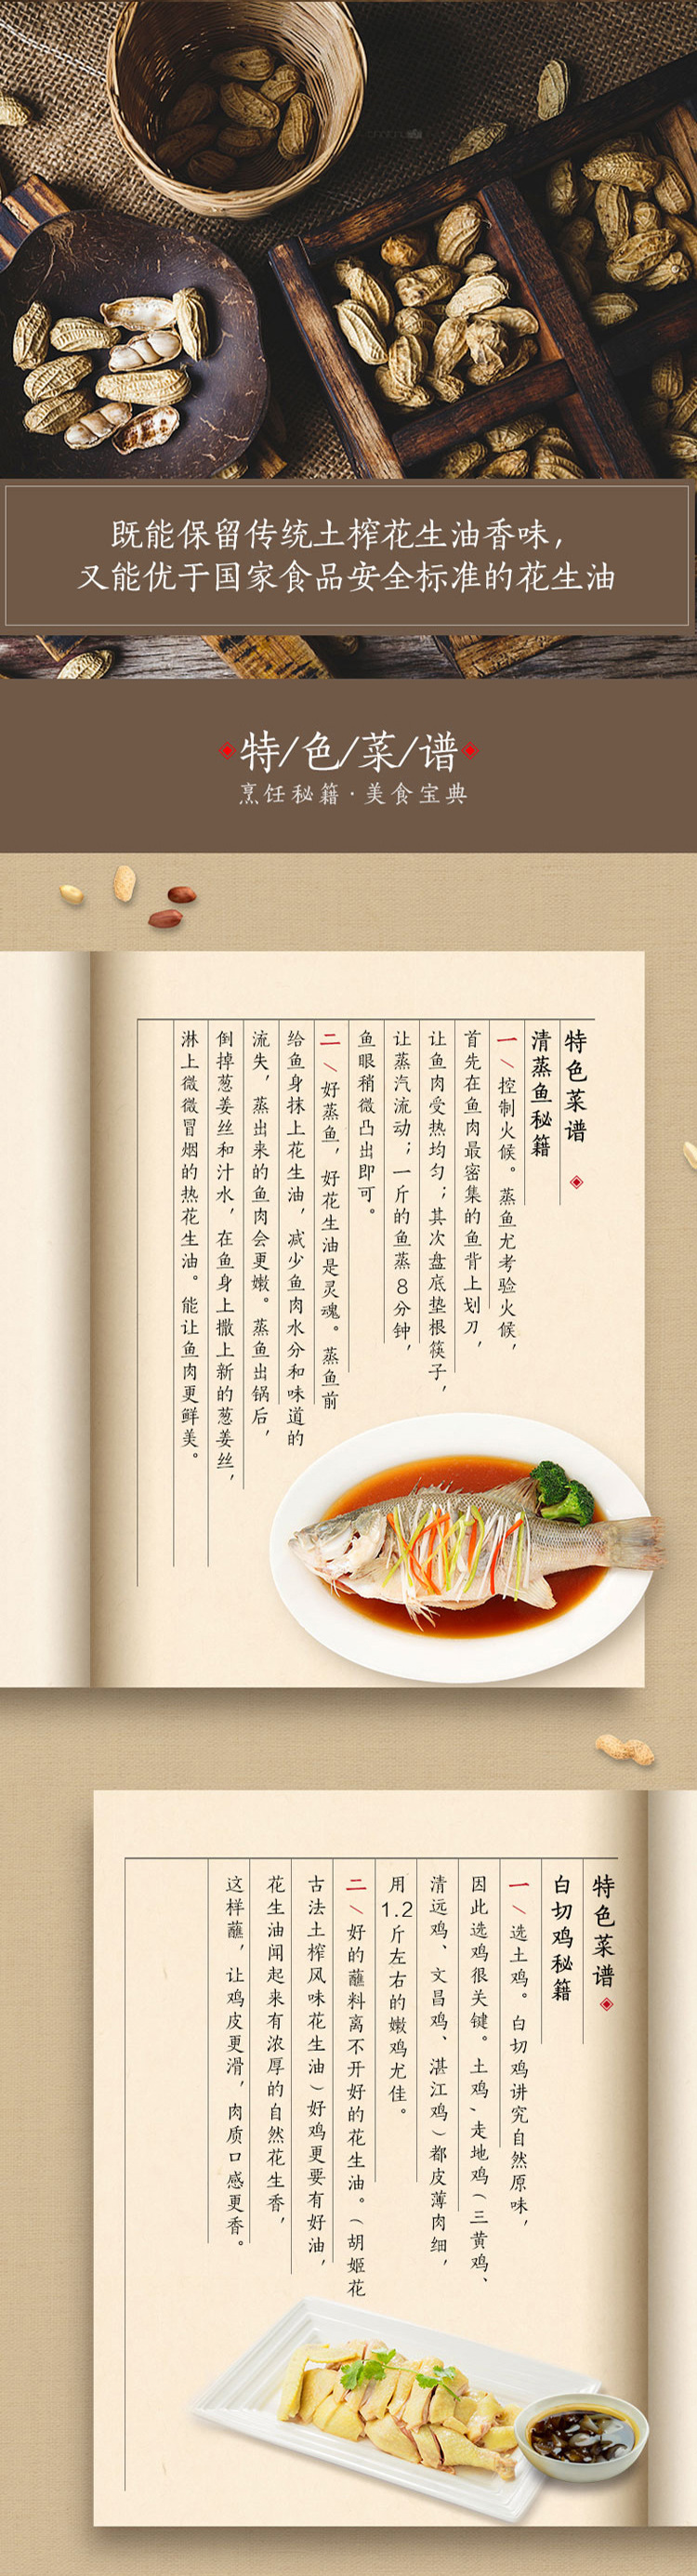 既能保留传统土榨花生油香味，
又能优于国家食品安全标准的花生油
特/色/菜/谱
烹饪秘籍·美食宝典
特色菜谱
清蒸鱼秘籍
一\控制火候。蒸鱼尤考验火候，
首先在鱼肉最密集的鱼背上划刀，
让鱼肉受热均匀；其次盘底垫根筷子，
让蒸汽流动；一斤的鱼蒸8分钟，
鱼眼稍微凸出即可。
二\好蒸鱼，好花生油是灵魂。蒸鱼前
给鱼身抹上花生油，减少鱼肉水分和味道的
流失，蒸出来的鱼肉会更嫩。蒸鱼出锅后，
倒掉葱姜丝和汁水，在鱼身上撒上新的葱姜丝，
淋上微微冒烟的热花生油。能让鱼肉更鲜美。
特色菜谱
白切鸡秘籍
一\选土鸡。白切鸡讲究自然原味，
因此选鸡很关键。土鸡、走地鸡(三黄鸡、
清远鸡、文昌鸡、湛江鸡)都皮薄肉细，
用1.2斤左右的嫩鸡尤佳。
二\好的蘸料离不开好的花生油。(胡姬花
古法土榨风味花生油)好鸡更要有好油，
花生油闻起来有浓厚的自然花生香，
这样蘸，让鸡皮更滑，肉质口感更香。